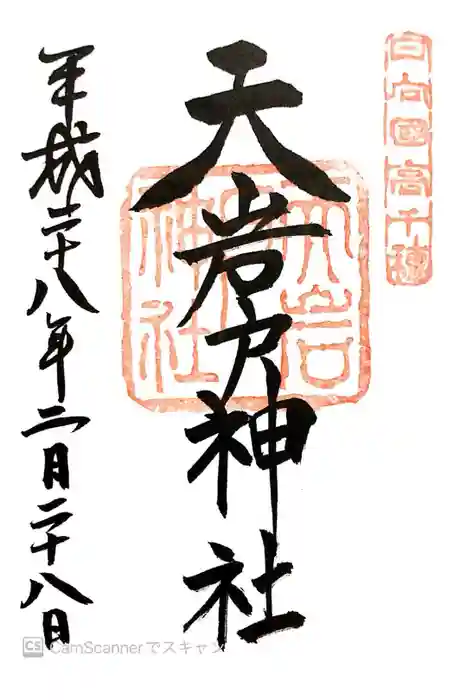 日向國高千穂
天岩戸神社
天岩戸神社
平成二十八年二月二十八日
CS CamScannerでスキャン